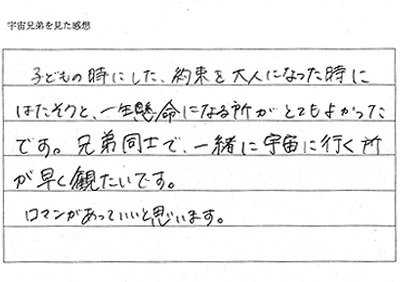 宇宙兄弟を見た感想
子どもの時にした、約束を大人になった時に
はたそうと、一生懸命になる所がとてもよかった
です。兄弟同士で、一緒に宇宙に行く所
が早く観たいです。
ロマンがあっていいと思います。